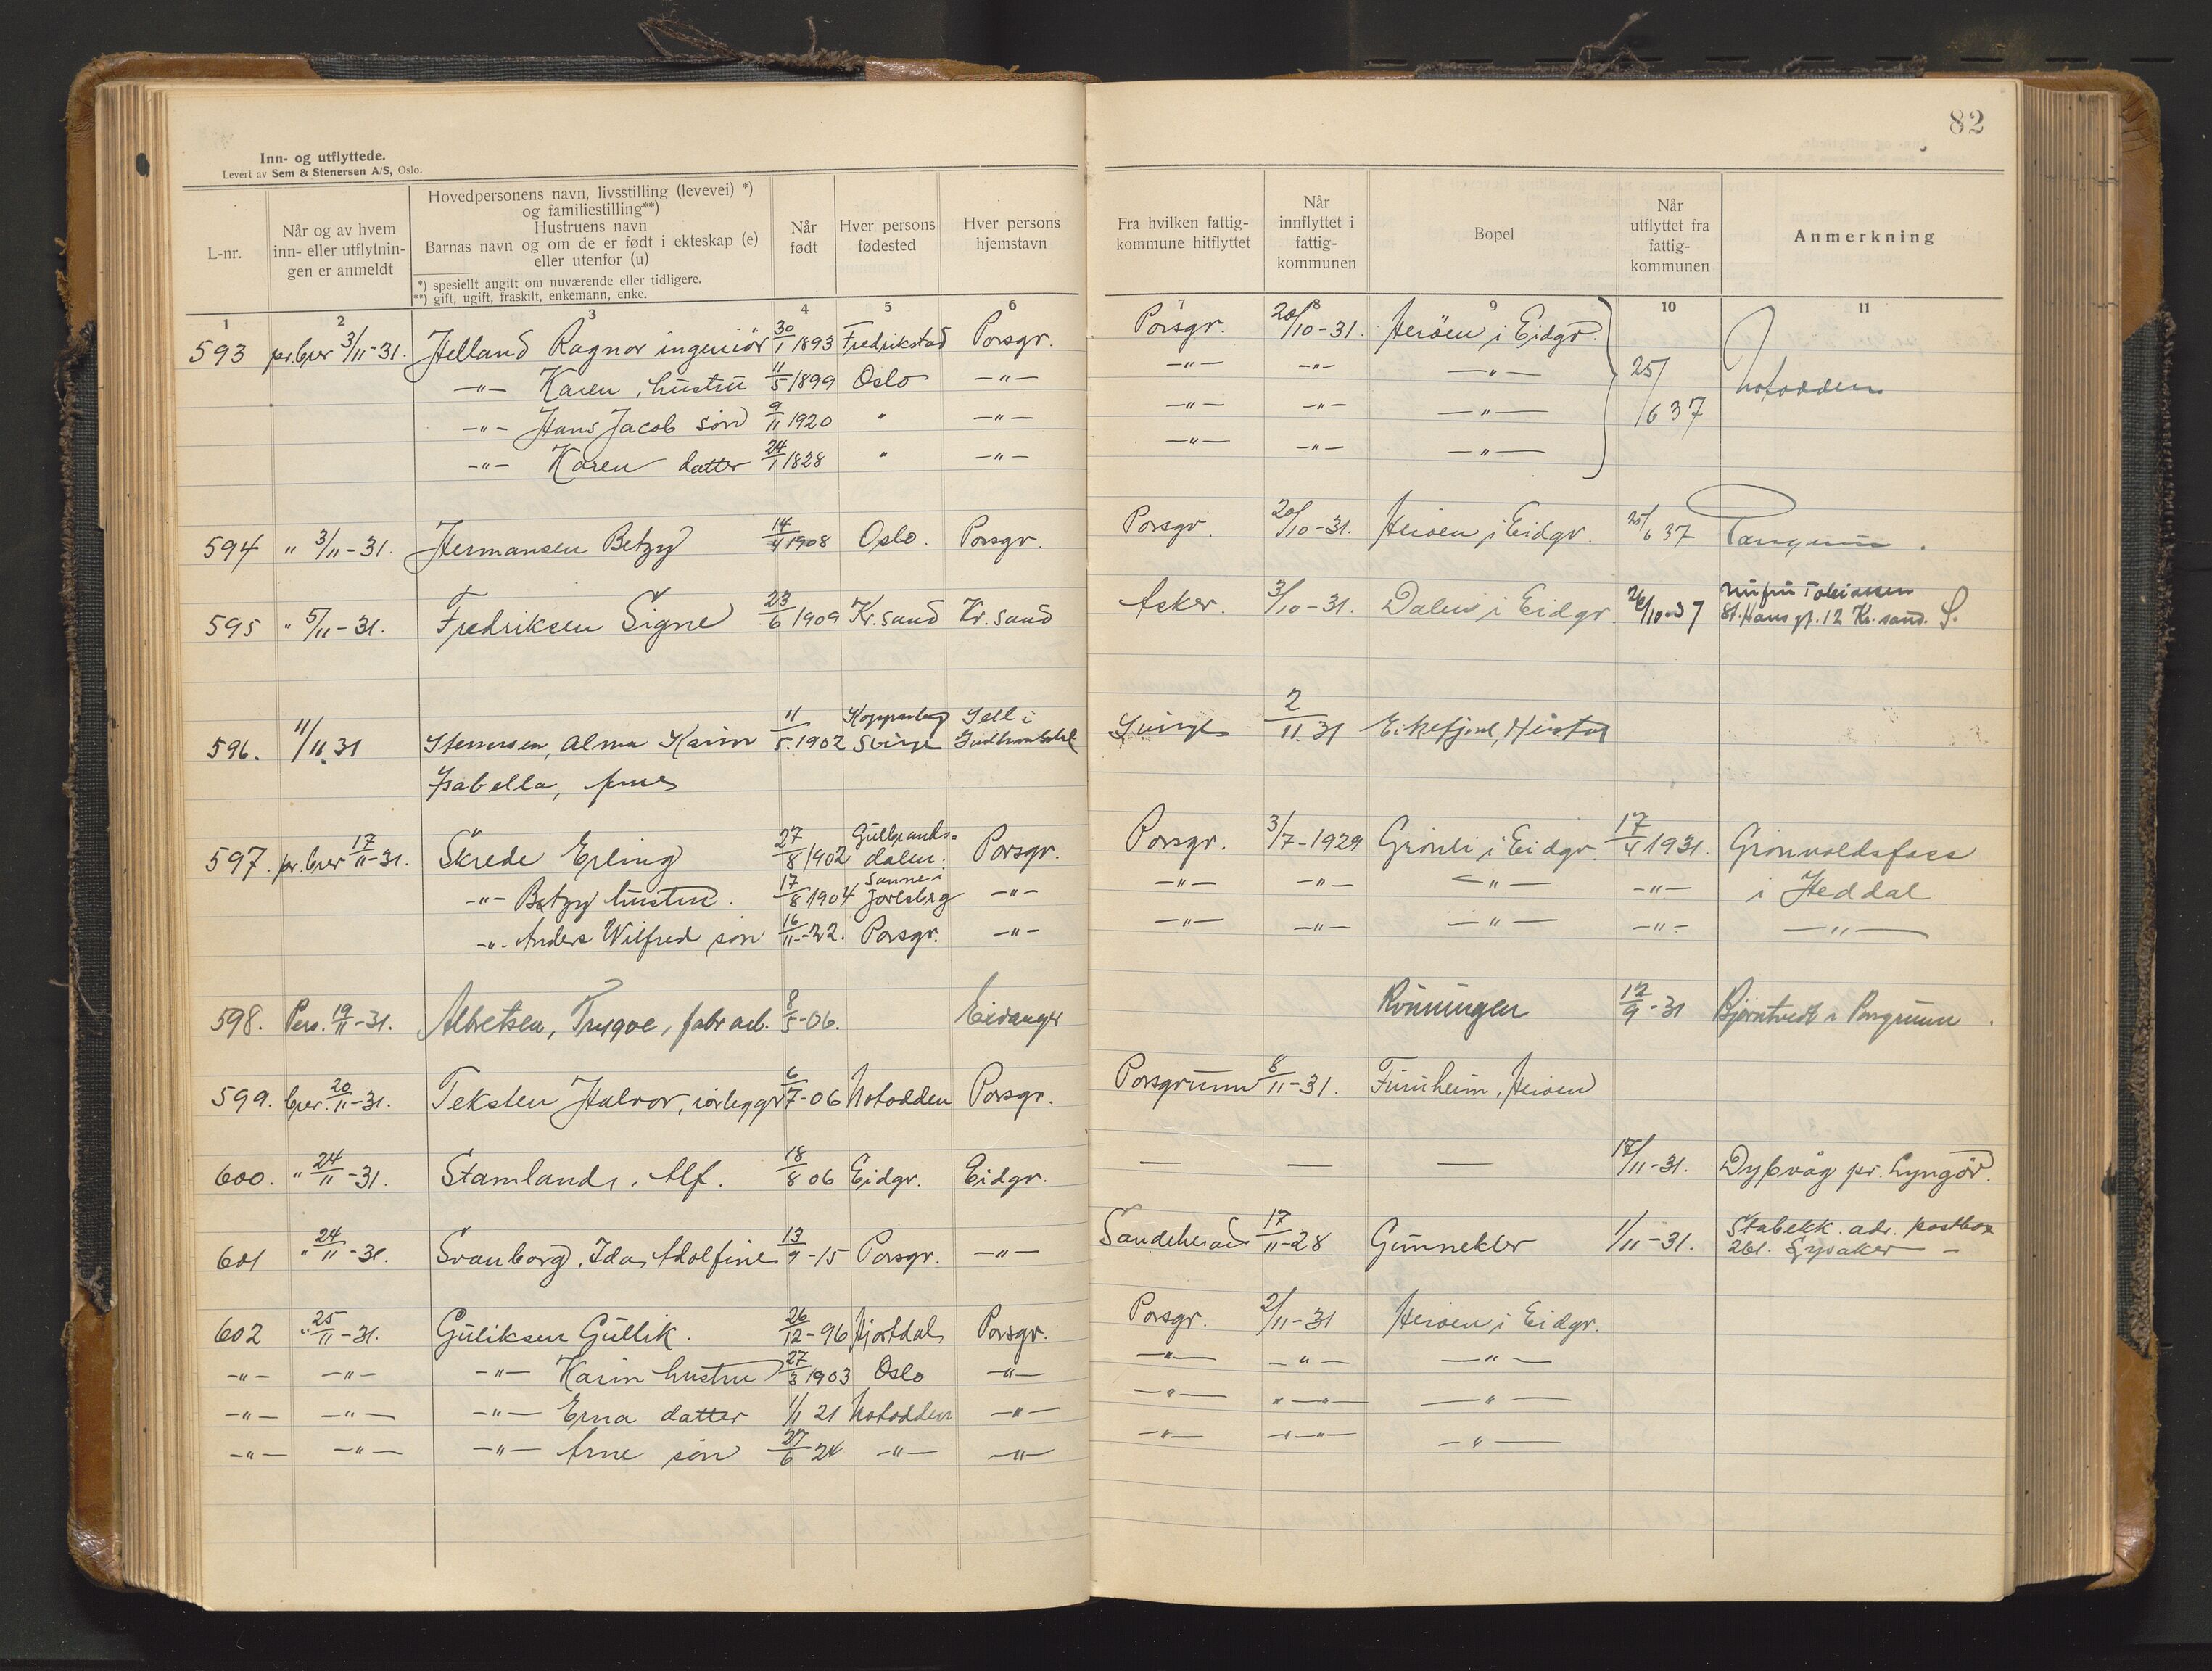 82
Inn- og utflyttede.
Levert av Sem & Stenersen A/S, Oslo.
L-nr.
Når og av hvem
inn- eller utflytnin-
gen er anmeldt
Hovedpersonens navn, livsstilling (levevei) *)
og familiestilling**)
Hustruens navn
Barnas navn og om de er født i ekteskap (e)
eller utenfor (u)
*) spesiellt angitt om nuværende eller tidligere.
**) gift, ugift, fraskilt, enkemann, enke.
Når
født
Hver persons
fødested
Hver persons
hjemstavn
Fra hvilken fattig-
kommune hitflyttet
Når
innflyttet i
fattig-
kommunen
Bopel
Når
utflyttet fra
fattig-
kommunen
Anmerkning
1 2 3 4 5 6 7 8 9 10 11
593 pr. brev 3/11-31. Helland Ragnar ingeniör 30/1 1893 Fredrikstad Porsgr. Porsgr. 20/10-31. Heröen i Eidgr.
-"- Karen, hustru 11/5 1899 Oslo -"- -"- -"- -"- 25/6 37 Notodden
-"- Hans Jacob sön 9/11 1920 " -"- -"- -"- -"-
-"- Karen datter 24/1 1828 " -"- -"- -"- -"-
594 " 3/11-31. Hermansen Betzy 14/4 1908 Oslo. Porsgr. Porsgr. 20/10-31. Heröen i Eidgr. 25/6 37 Porsgrunn.
595 " 5/11-31. Fredriksen Signe 23/6 1909 Kr.sand Kr.sand Asker. 3/10-31. Dalen i Eidgr. 26/10-37 Nu fru Tobiassen
St. Hans gt. 12 Kr.sand. S.
596. 11/11 31 Stenersen, Alma Karin 11/5.1902 Kopparberg Sverige Sell i Gudbrandsdal Sverige 2/11.31 Eikefjord, Hersta
Isabella, frue
597. pr. brev 17/11-31. Skrede Erling 27/8 1902 Gulbrands=dalen. Porsgr. Porsgr. 3/7-1929 Grönli i Eidgr. 17/4 1931. Grönvoldsfoss
-"- Betzy hustru. 17/8 1904 Sanne i Jarlsbrg -"- -"- -"- -"- -"- i Heddal
-"- Anders Wilfred sön 16/11-22. Porsgr. -"- -"- -"- -"- -"- -"-
598. Pers. 19/11-31. Albretsen, Trygve, fabr arb. 8/5-06. Eidanger Rönningen 12/9-31 Björntvedt i Porsgrunn.
599. brev. 20/11-31. Teksten Halvor, rörlegger 6/7-06 Notodden Porsgr. Porsgrunn 8/11-31. Furuheim, Heröen
600. " 24/11-31. Stamland, Alf. 18/8 06 Eidgr. Eidgr. — — — 17/11-31. Dybvåg pr. Lyngör.
601 " 24/11-31. Svanborg, Ida, Adolfine 13/9-15 Porsgr. -"- Sandeherad 17/11-28 Gunnekler 1/11-31. Stabekk. adr. postbox
261. Lysaker -
602 " 25/11-31. Guliksen Gullik. 26/12-96 Hjortdal Porsgr. Porsgr. 2/11-31 Heröen i Eidgr.
-"- -"- -"- Karin hustru 27/3 1903 Oslo -"- -"- -"- -"-
-"- -"- -"- Erna datter 1/1 21 Notodden -"- -"- -"- -"-
-"- -"- -"- Arne sön 27/6 24 -"- -"- -"- -"- -"-